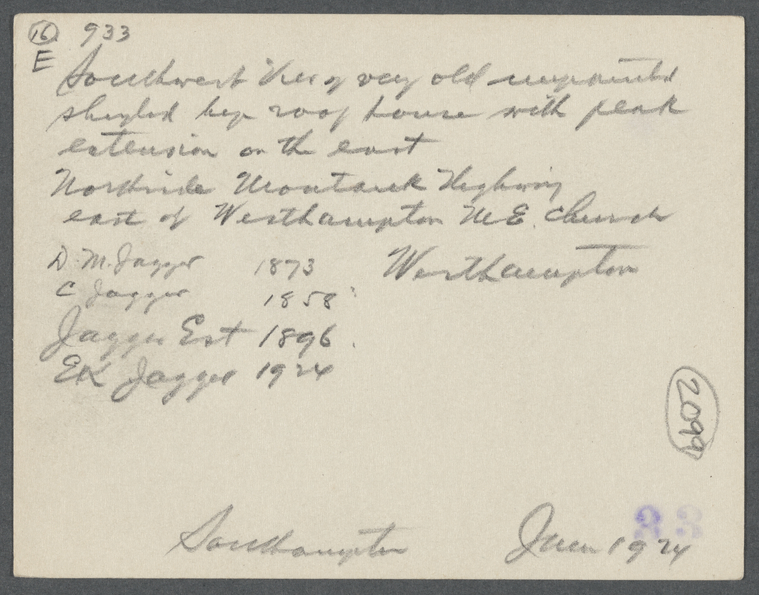 16 933
E
Southwest View of very old unpainted
shingled hip roof house with peak
extension on the east
Northside Montauk Highway
east of Westhampton M.E. Church
D. M. Jagger 1873 Westhampton
C Jagger 1858
Jagger Est 1896.
EK Jagger 1924
2099
33
Southampton June 1924